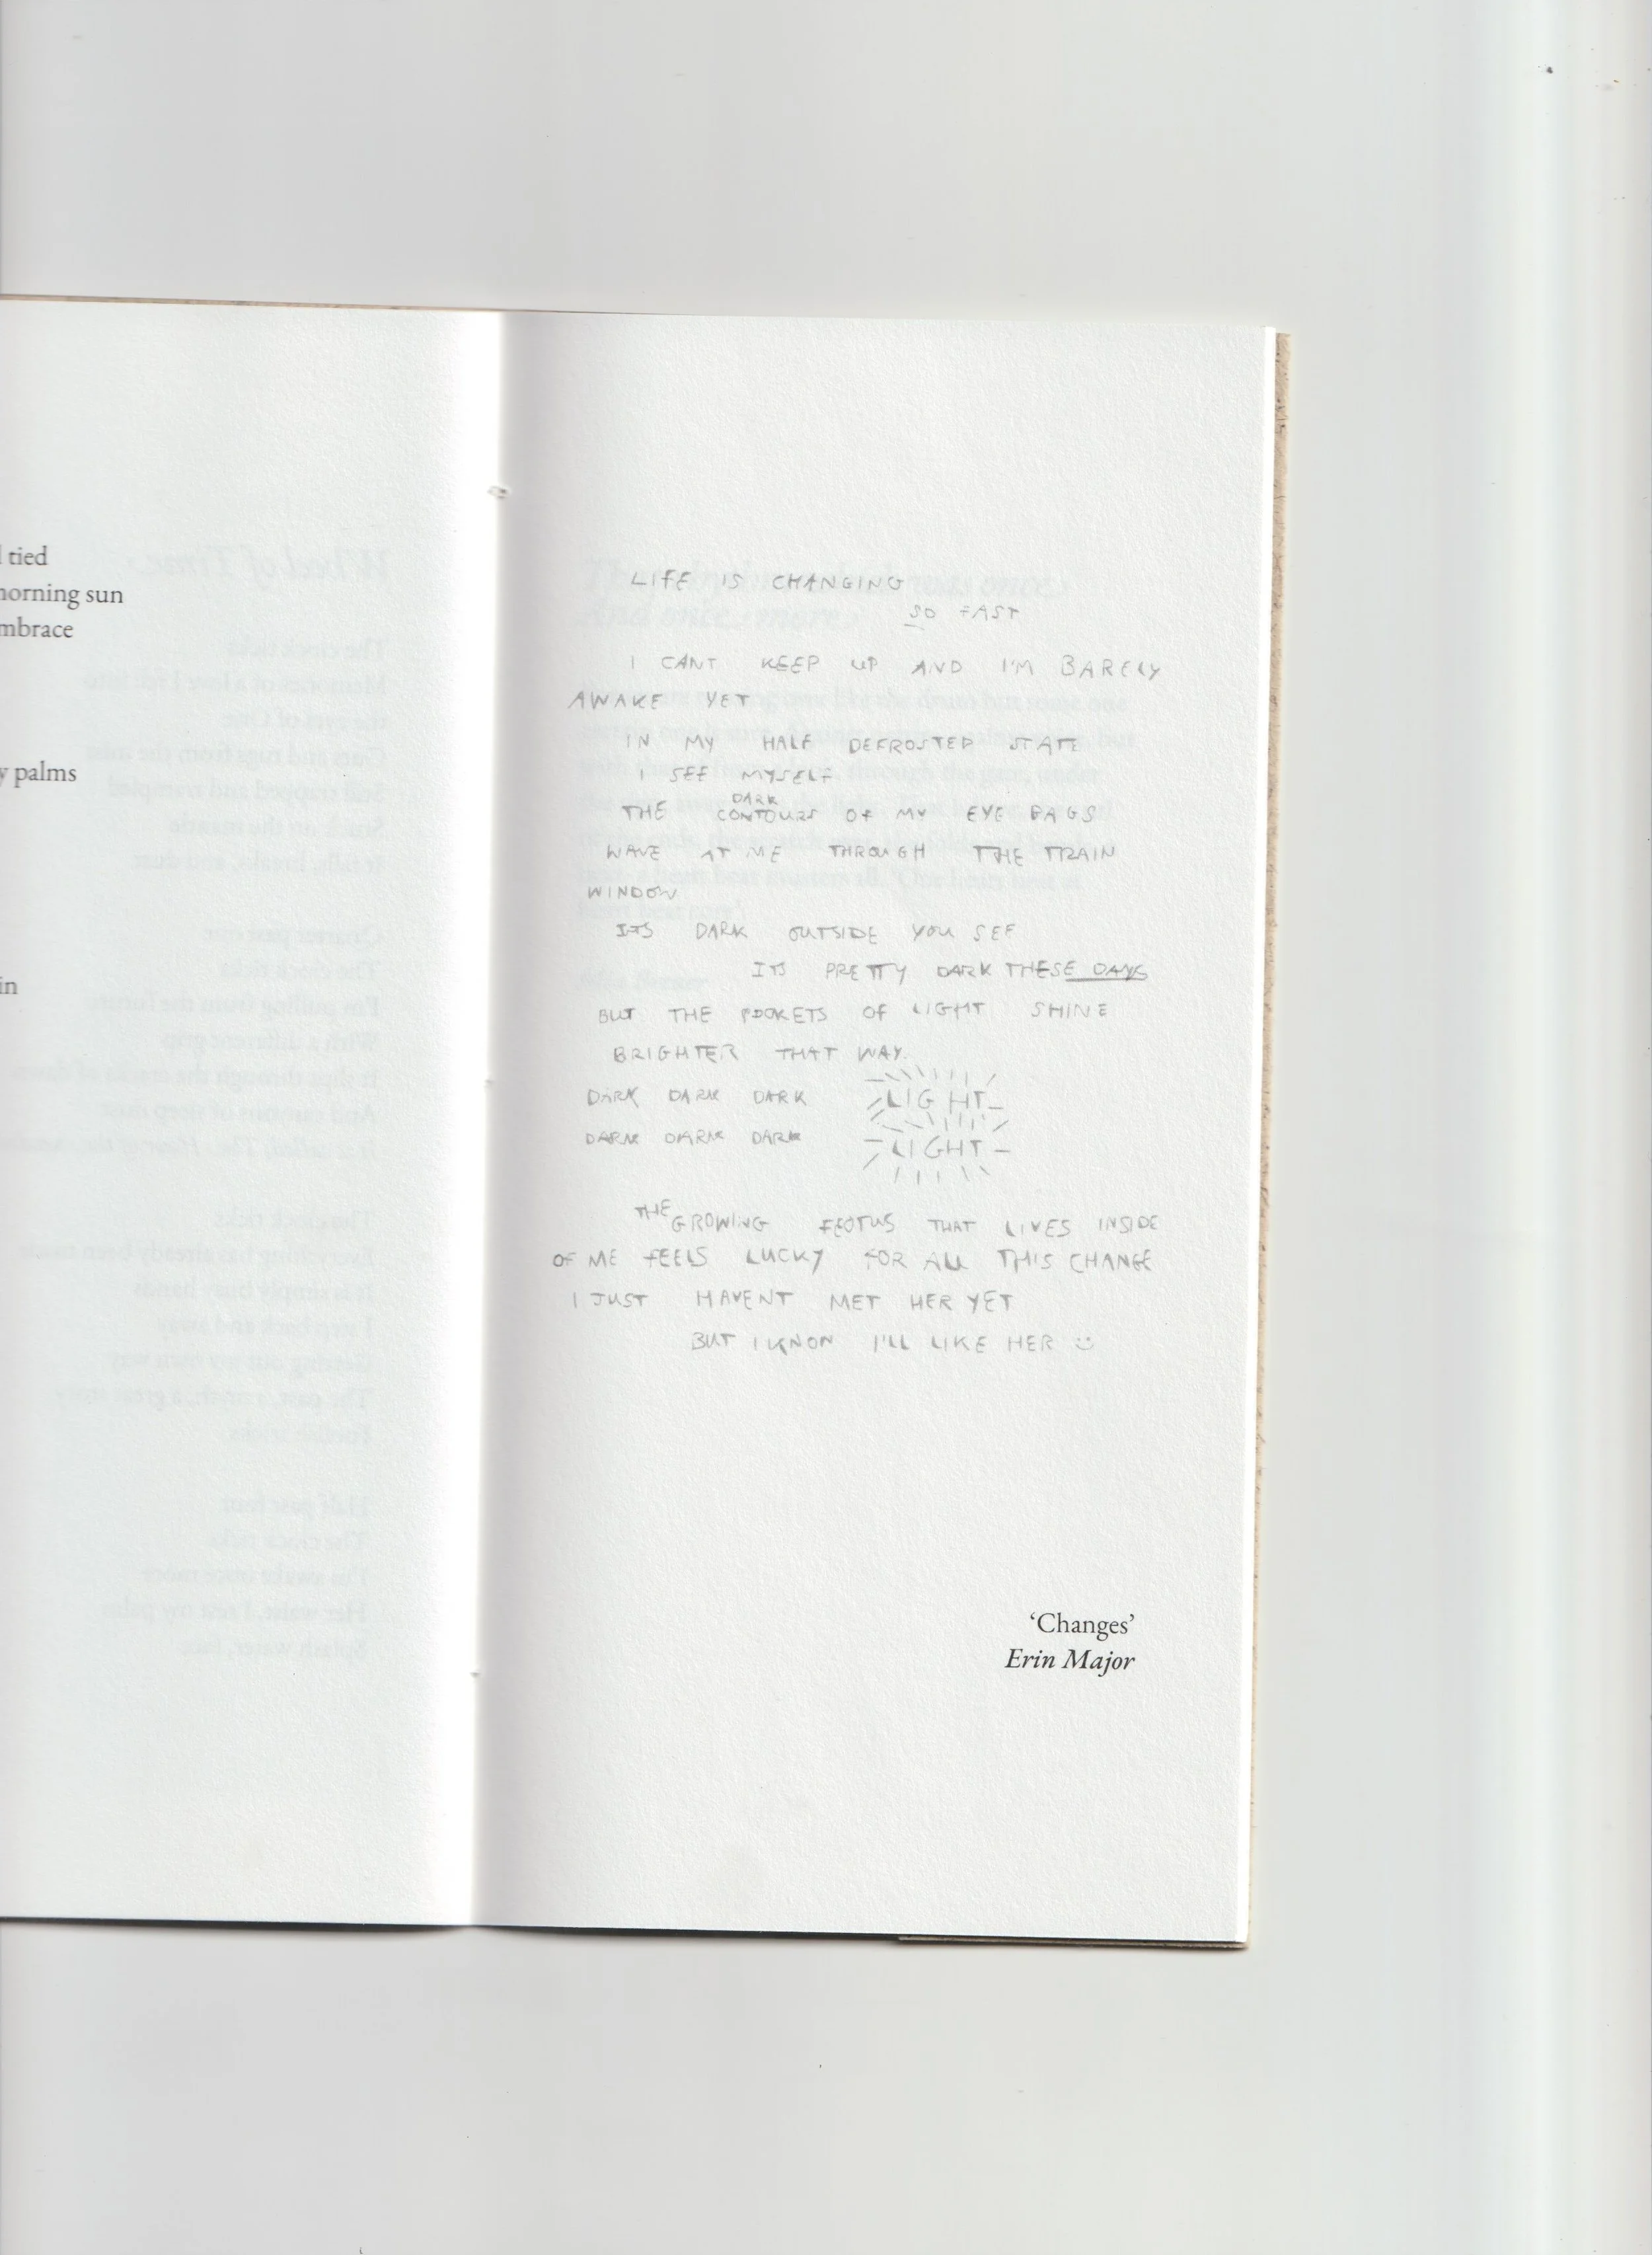 tied
morning sun
embrace
palms
in
LIFE IS CHANGING
SO FAST
I CANT KEEP UP AND I'M BARELY
AWAKE YET
IN MY HALF DEFROSTED STATE
I SEE MYSELF
DARK
THE CONTOURS OF MY EYE BAGS
WAVE AT ME THROUGH THE TRAIN
WINDOW
ITS DARK OUTSIDE YOU SEE
ITS PRETTY DARK THESE DAYS
BUT THE POCKETS OF LIGHT SHINE
BRIGHTER THAT WAY.
DARK DARK DARK LIGHT
DARK DARK DARK LIGHT
THE GROWING FEOTUS THAT LIVES INSIDE
OF ME FEELS LUCKY FOR ALL THIS CHANGE
I JUST HAVENT MET HER YET
BUT I KNOW I'LL LIKE HER :)
‘Changes’
Erin Major